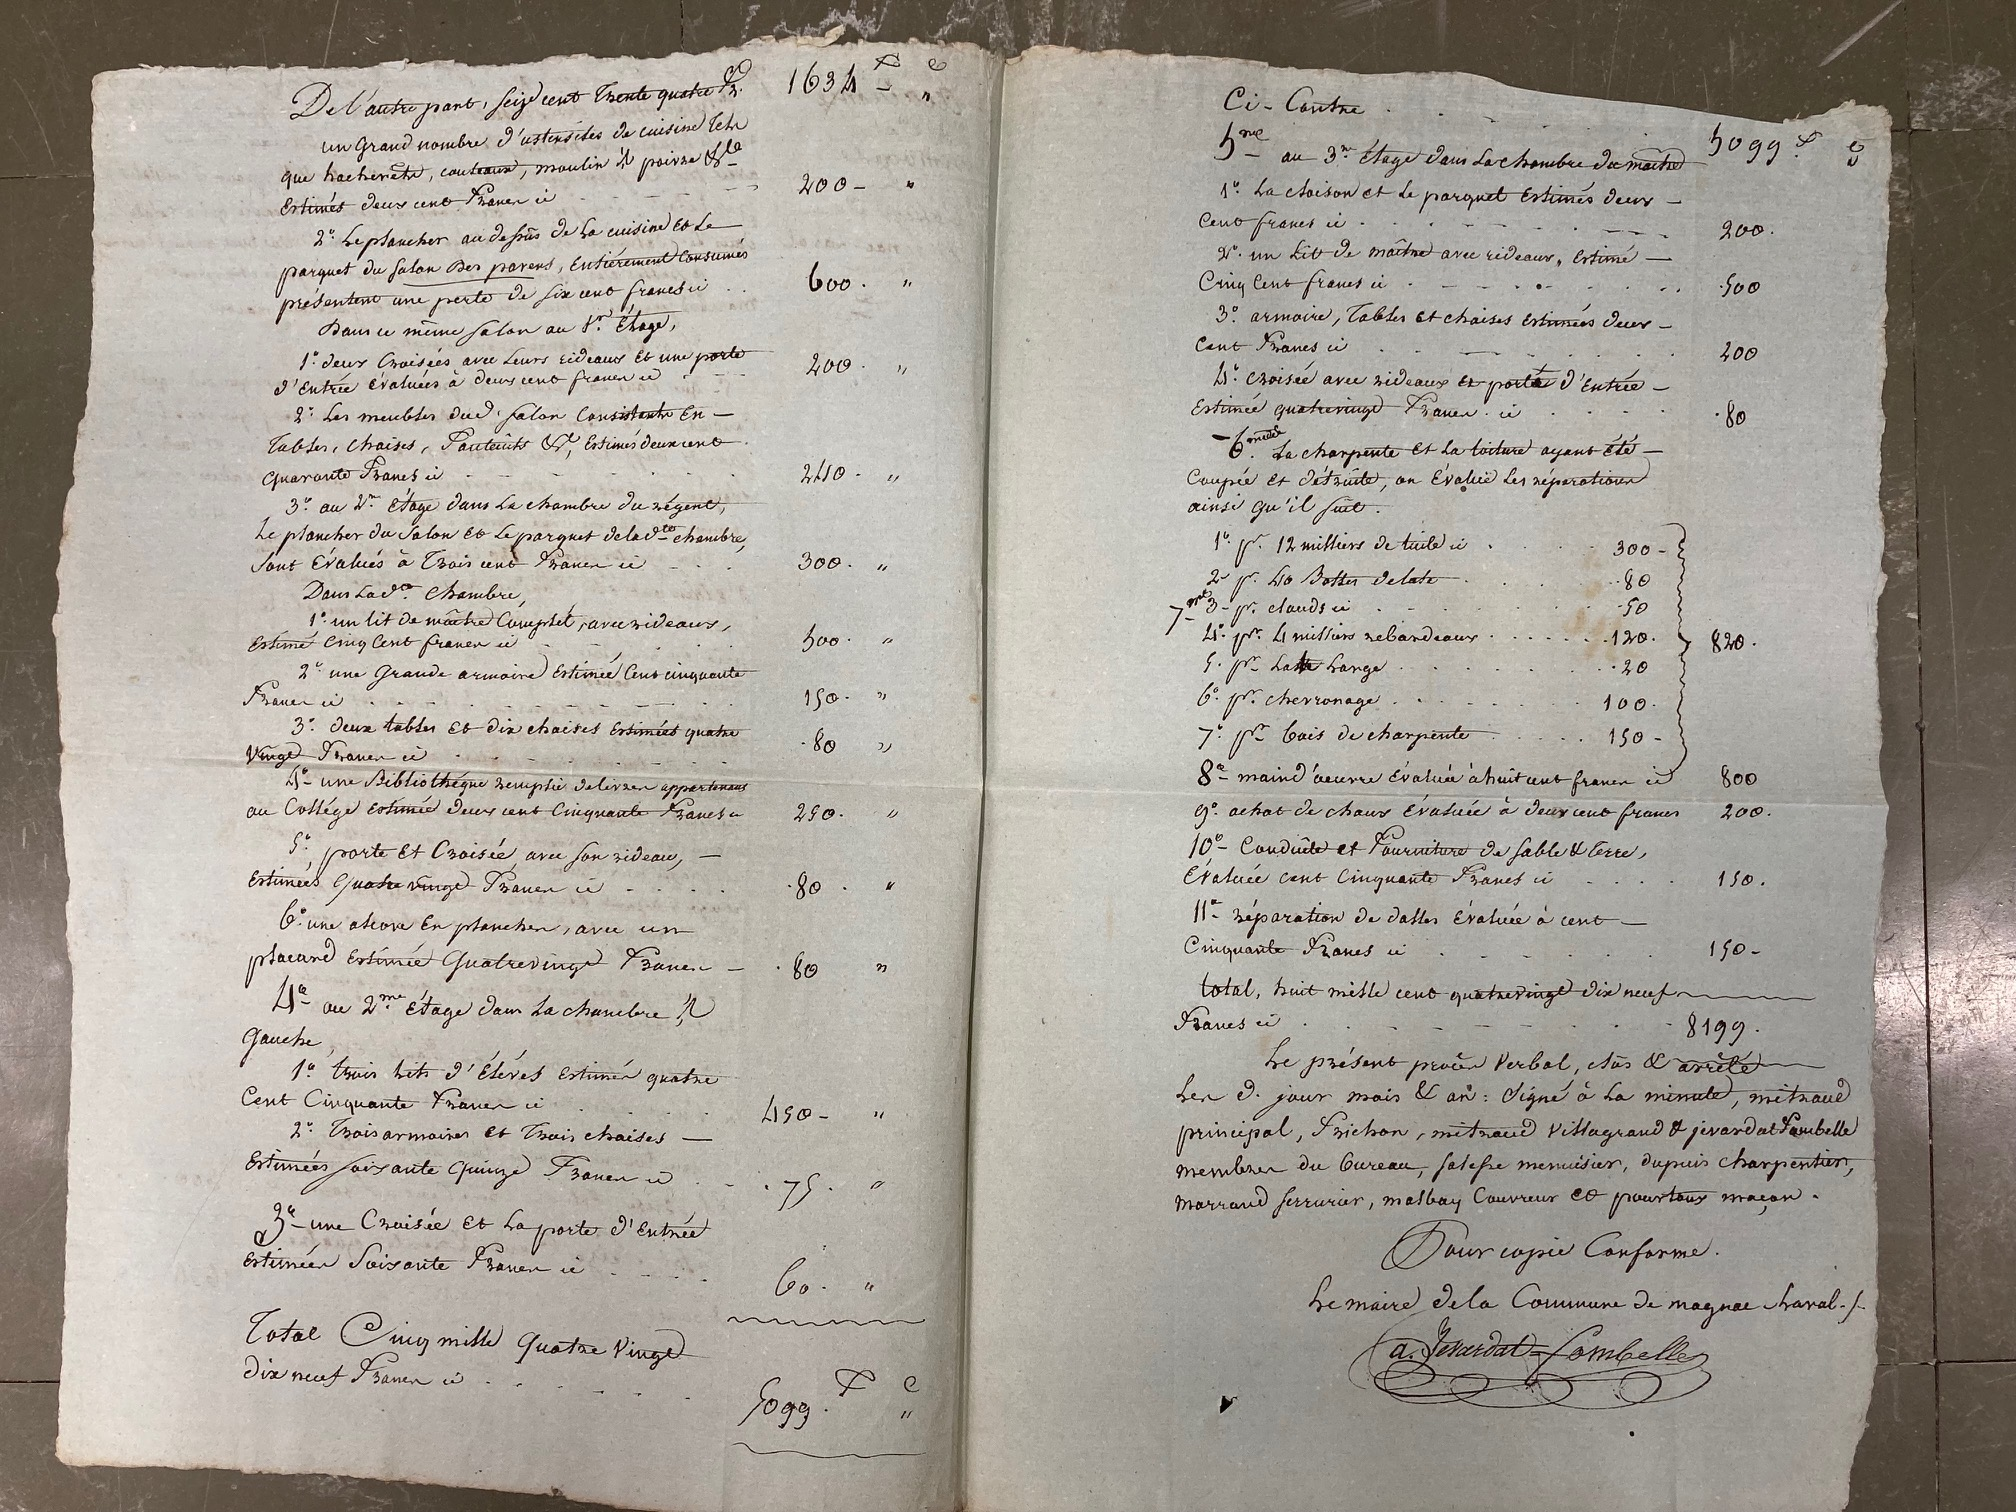 De l'autre part, seize cent trente quatre fr. 1634 F - C "
un grand nombre d'ustensiles de cuisine tels
que hacherets, couteaux, moulin à poivre &a
estimés deux cent francs ci 200 - "
2° Le plancher au dessus de la cuisine et le
parquet du salon des parens, entièrement consumés
présentent une perte de six cent francs ci . . 600 . "
Dans ce même salon au 1er étage,
1° deux croisées avec leurs rideaux et une porte
d'entrée évaluées à deux cent francs ci 200 . "
2° Les meubles dud. salon consistants en -
tables, chaises, fauteuils &a, estimés deux cent
quarante francs ci 240 . "
3° au 2me étage dans la chambre du régent,
Le plancher du salon et le parquet de lad.te chambre,
sont évalués à trois cent francs ci 300 . "
Dans lad.te chambre,
1° un lit de maître complet, avec rideaux,
estimé cinq cent francs ci 500 . "
2° une grande armoire estimée cent cinquante
francs ci 150 . "
3° deux tables et dix chaises estimées quatre
vingt francs ci . 80 "
4° une Bibliothéque remplie de livres appartenans
au Collége estimée deux cent cinquante francs ci 250 . "
5° porte et croisée avec son rideau, -
estimées quatre vingt francs ci . 80 . "
6° une alcove en planches, avec un
placard estimée quatrevingt francs - . 80 "
4° au 2.me étage dans la chambre à
gauche,
1° trois lits d'élèves estimés quatre
cent cinquante francs ci 450 - "
2° trois armoires et trois chaises -
estimées soixante quinze francs ci . 75 . "
3° une croisée et la porte d'entrée
estimées soixante francs ci 60 . "
Total Cinq mille quatre vingt
dix neuf francs ci 5099 . F C "
Ci-Contre . 5099 . F C "
5me au 3.me étage dans la chambre du maître
1° La cloison et le parquet estimés deux -
cent francs ci 200 .
2° un lit de maître avec rideaux, estimé -
cinq cent francs ci . 500
3° armoire, tables et chaises estimées deux -
cent francs ci 200
4° croisée avec rideaux et porte d'entrée -
estimée quatrevingt francs . ci . 80
- 6me La charpente et la toiture ayant été -
coupée et détruite, on évalue les réparations
ainsi qu'il suit .
1° pr. 12 milliers de tuile ci 300 -
2° pr. 40 Bottes de late . 80
7me 3 - pr. clouds ci . 50
4° pr. 4 milliers rebardeaux 120 . 820 .
5. pr. Latte Large . 20
6° pr. chevronage 100 .
7° pr. bois de charpente 150 -
8° main d'oeuvre évaluée à huit cent francs ci 800
9° achat de chaux évaluée à deux cent francs 200 .
10° Conduite et fourniture de sable & terre,
évaluée cent cinquante francs ci 150 .
11° réparation de dalles évaluée à cent -
cinquante francs ci 150 -
total, huit mille cent quatrevingt dix neuf
francs ci 8199 .
Le présent procès verbal, clos & arrêté
Les d. jour mois & an : signé à la minute, mitraud
principal, Frichon, mitraud villagrand & jevardat Fombelle
membres du bureau, salesse menuisier, dupuis charpentier,
marraud serrurier, malbay couvreur et pourtoux maçon .
Pour copie Conforme .
Le maire de la Commune de magnac-Laval ./.
a. Jevardat-Fombelle